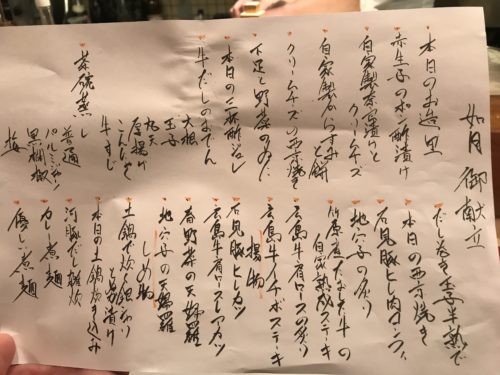 如月 御献立
本日のお造里
赤生子のポン酢漬け
自家製奈良漬けと
クリームチーズ
自家製からすみと餅
クリームチーズの西京焼き
下足と野菜のぬた
本日の三杯酢浸し
牛だしのおでん
大根
玉子
丸天
厚揚げ
こんにゃく
牛すじ
茶碗蒸し
普通
パルミジャーノ
黒胡椒
梅
だし巻き玉子半熟で
本日の西京焼き
石見豚ヒレ肉
地穴子の炙り
竹原産
自家熟成ステーキ
広島牛肩ロースの炙り
広島牛イチボステーキ
揚物
石見豚ヒレカツ
広島牛肩ロースレアカツ
春野菜の天婦羅
地穴子の天婦羅
しめ物
土鍋で炊く銀シャリ
と漬け
本日の土鍋炊き込み
河豚だし雑炊
カレー煮麺
優しい煮麺